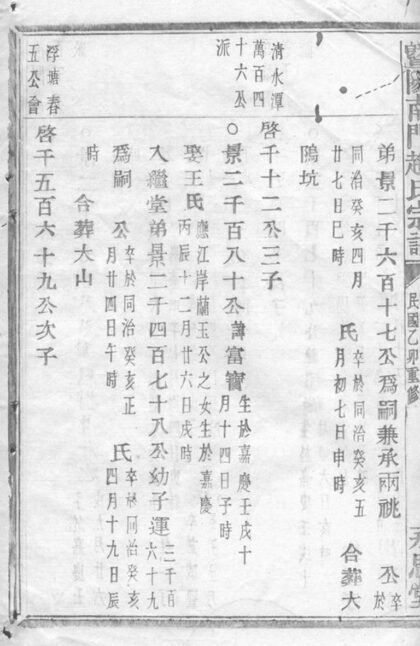 暨陽南門趙氏宗譜
民國乙卯重修
弟景二千六百十七公爲嗣兼承兩祧 公卒於
同治癸亥四月廿七日巳時 氏卒於同治癸亥五月初七日申時 合葬大
隖坑
清水潭
萬百四
十六公
派
啓千十二公三子
○景二千百八十公諱富寶生於嘉慶壬戌十月十四日子時
娶王氏應江岸蘭玉公之女生於嘉慶丙辰十二月廿六日戌時
入繼堂弟景二千四百七十八公幼子運三千百六十九
爲嗣 公卒於同治癸亥正月廿四日午時 氏卒於同治癸亥四月十九日辰
時 合葬大山
浮塘春
五公會
啓千五百六十九公次子